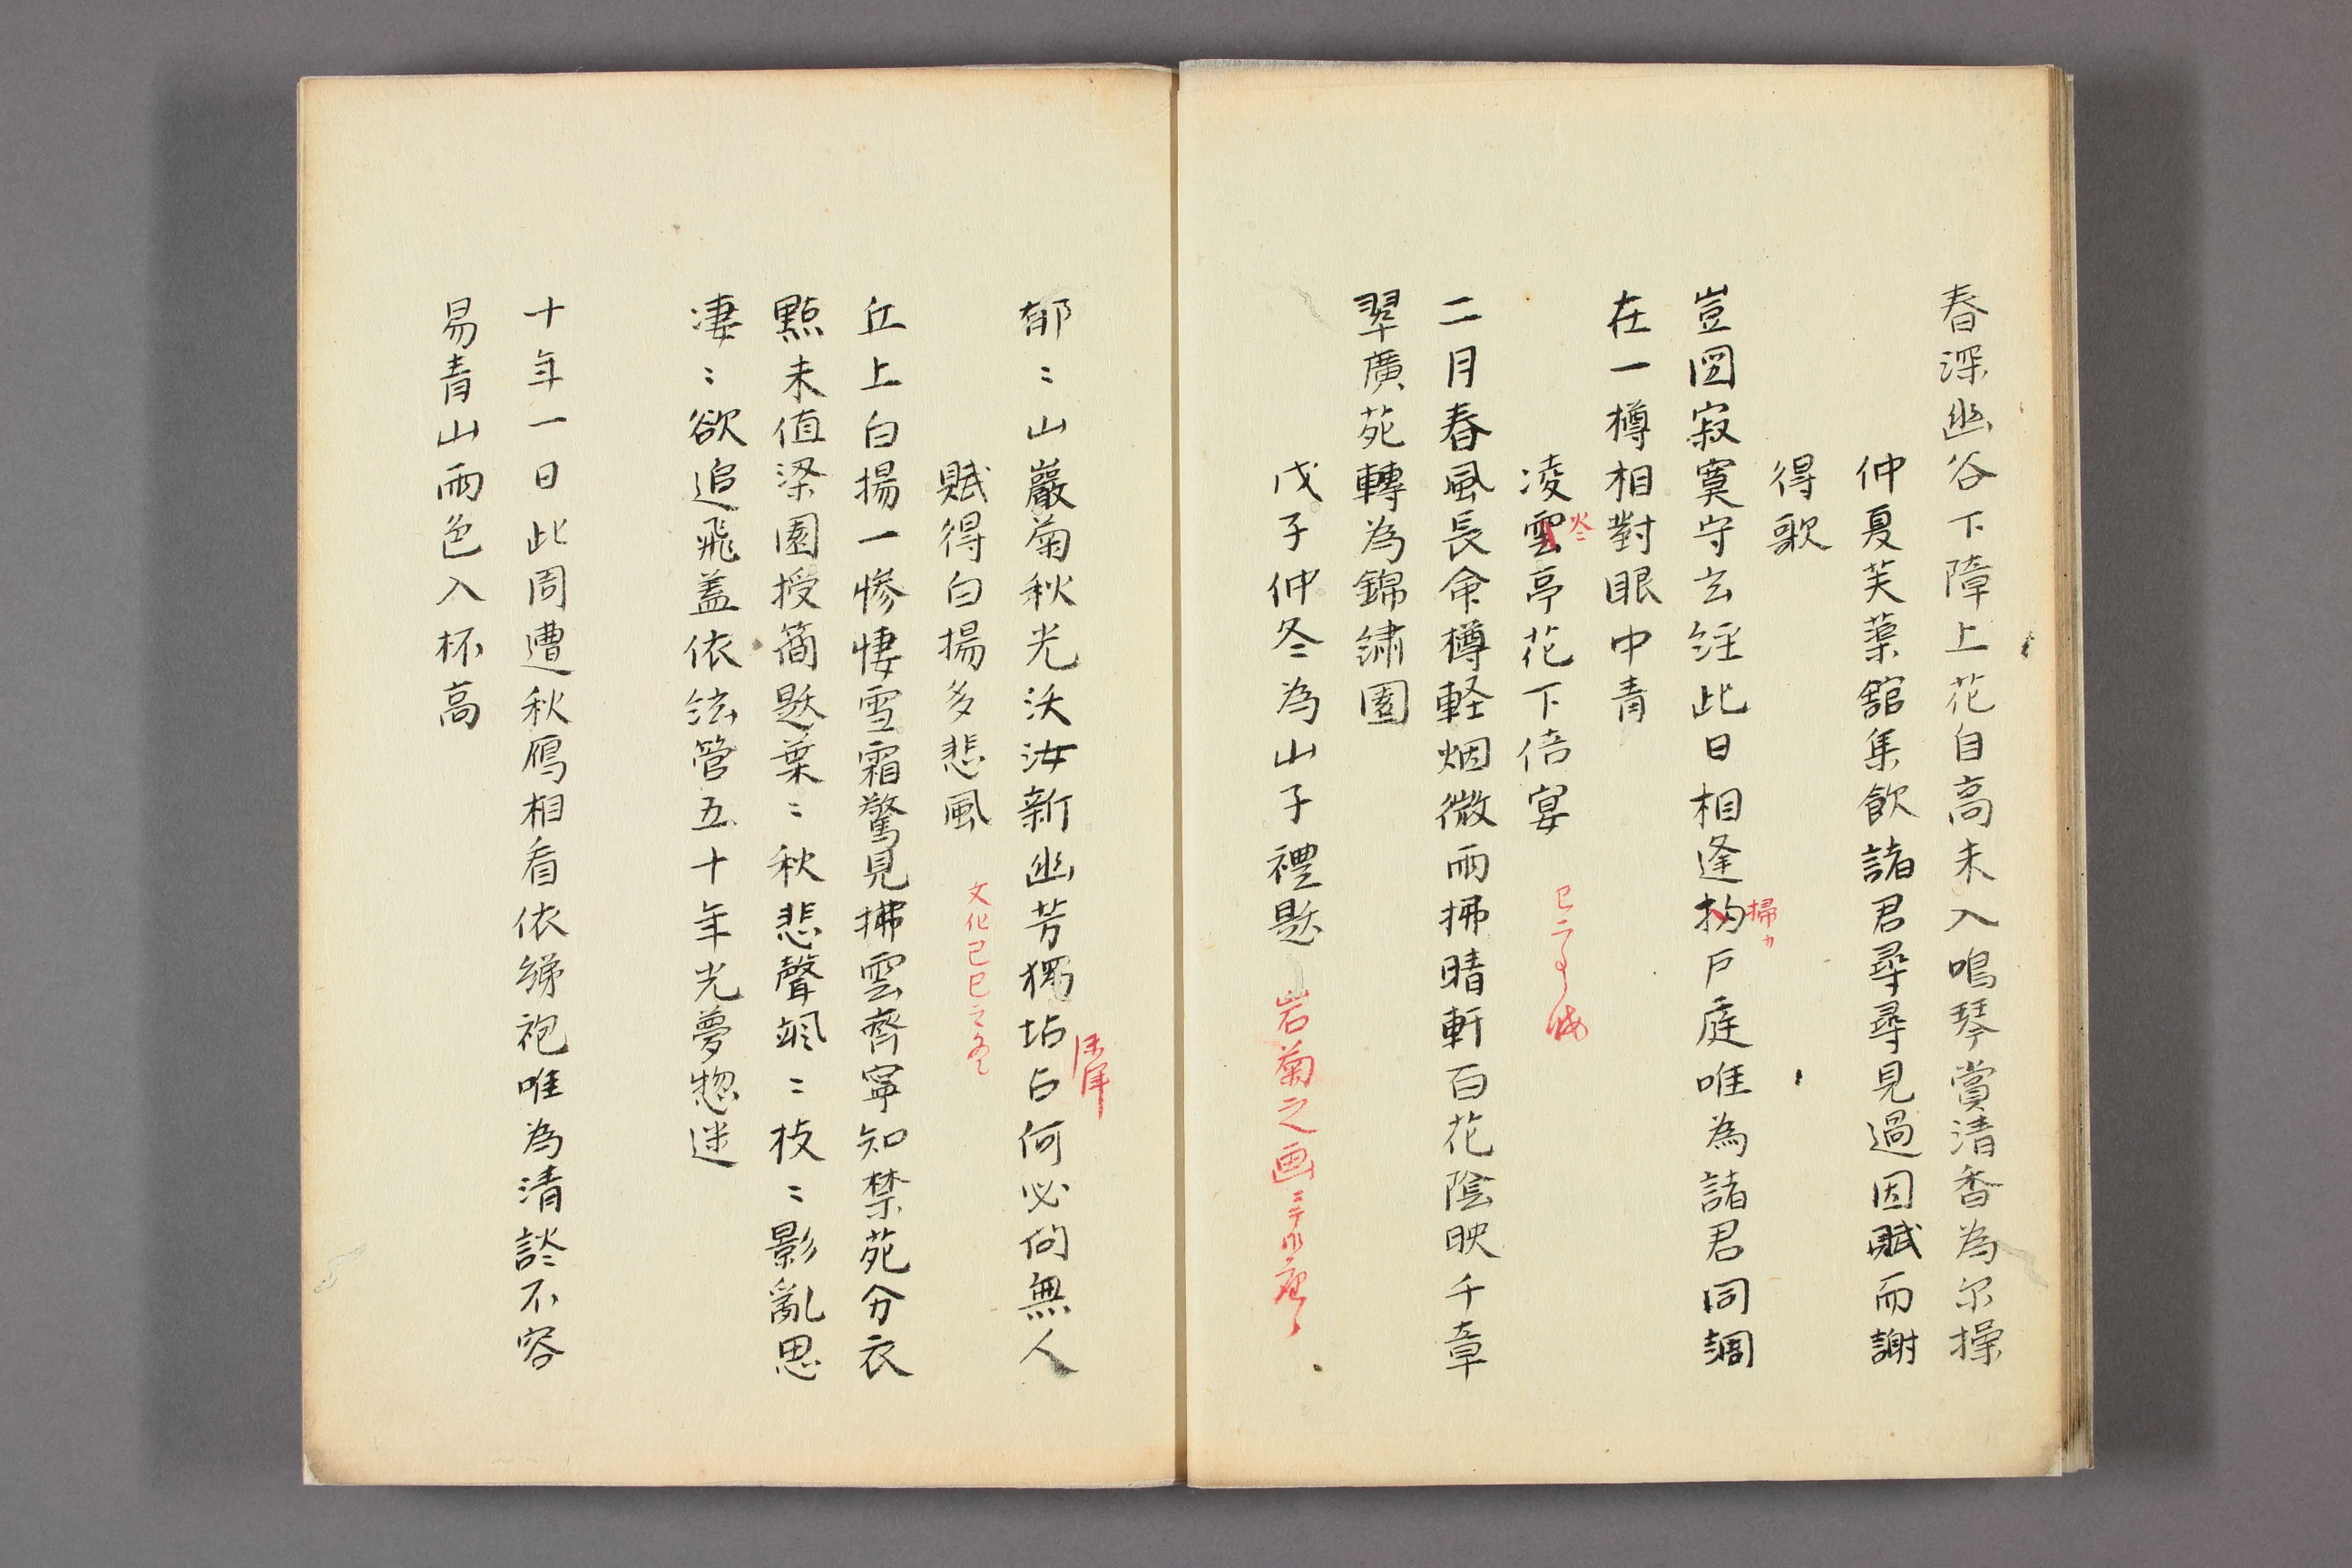 春深幽谷下障上花自高未入鳴琴賞清香為尔操
仲夏芙蕖館集飲諸君尋尋見過因賦而謝
得歌
豈図寂寞守玄経此日相逢拘戸庭唯為諸君同調
掃カ
在一樽相對眼中青
凌雲亭花下倍宴
二月春風長命樽軽烟微雨拂晴軒百花陰映千章
翠廣苑轉為錦繍園
戊子仲冬為山子禮題
岩菊之画
郁〻山巖菊秋光沃汝新幽芳獨坫占何必问無人
賦得白揚多悲風
文化己巳之冬
丘上白揚一惨悽雪霜驚見拂雲齊寧知禁苑分衣
點未值梁園授簡題葉〻秋悲聲颯〻枝〻影亂思
凄〻欲追飛蓋依絃管五十年光夢惣迷
十年一日此周遭秋鴈相看依綈袍唯為清談不容
易青山雨色入杯高